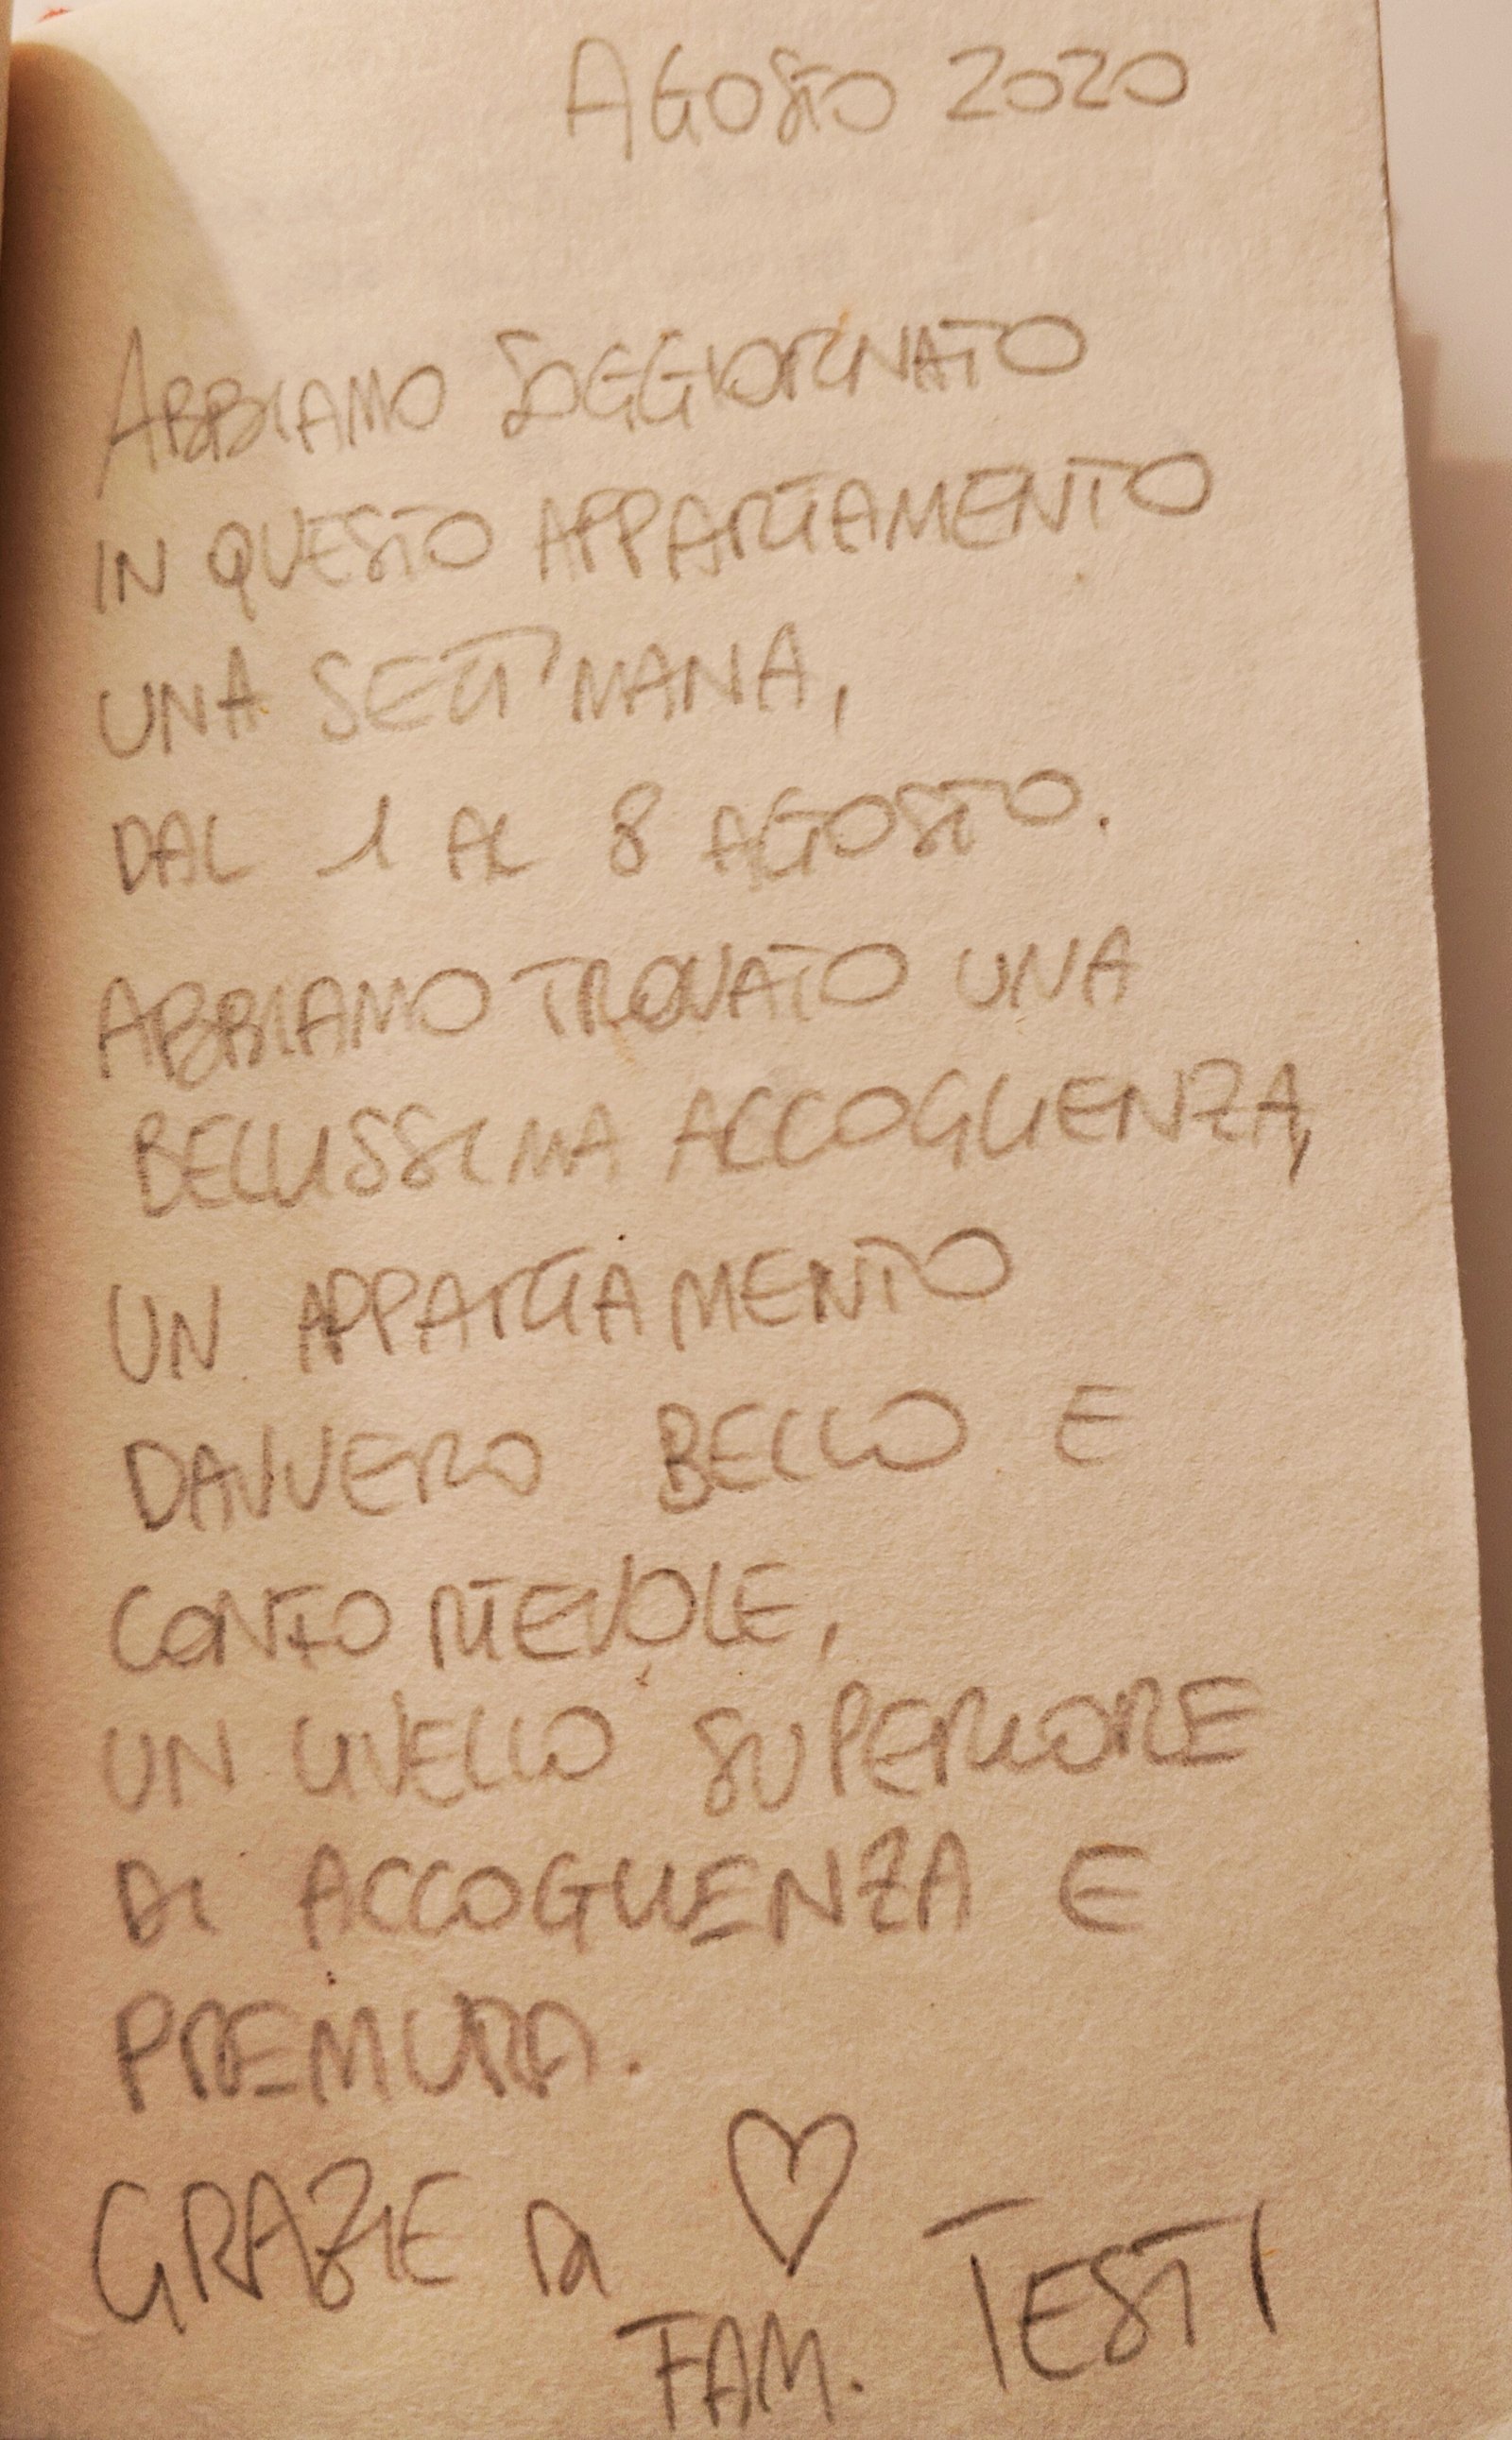 AGOSTO 2020
ABBIAMO SOGGIORNATO
IN QUESTO APPARTAMENTO
UNA SETTIMANA,
DAL 1 AL 8 AGOSTO.
ABBIAMO TROVATO UNA
BELLISSIMA ACCOGLIENZA,
UN APPARTAMENTO
DAVVERO BELLO E
CONFORTEVOLE,
UN LIVELLO SUPERIORE
DI ACCOGLIENZA E
PREMURA.
GRAZIE DA ♡
FAM. TESTI